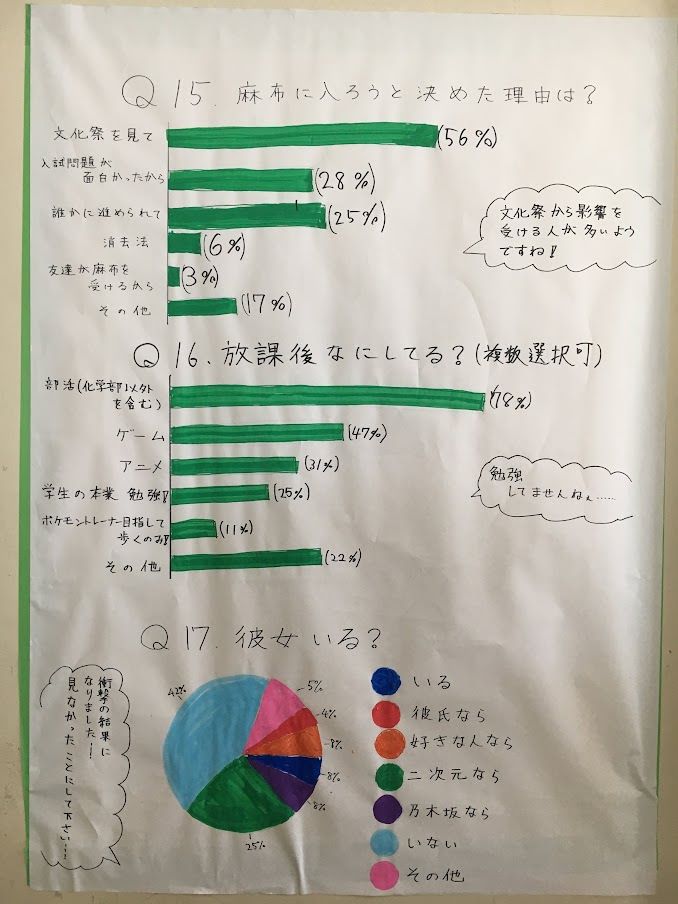 Q 15. 麻布に入ろうと決めた理由は？
文化祭を見て
(56%)
入試問題が
面白かったから
(28%)
誰かに進められて
(25%)
消去法
(6%)
友達が麻布を
受けるから
(3%)
その他
(17%)
文化祭から影響を
受ける人が多いよう
ですね！
Q 16. 放課後なにしてる？(複数選択可)
部活(化学部以外
を含む)
(78%)
ゲーム
(47%)
アニメ
(31%)
学生の本業 勉強！
(25%)
ポケモントレーナー目指して
歩くのみ！
(11%)
その他
(22%)
勉強
してませんねぇ……
Q 17. 彼女いる？
衝撃の結果に
なりました…！
見なかったことにして下さい…
42%
5%
4%
8%
8%
8%
25%
いる
彼氏なら
好きな人なら
二次元なら
乃木坂なら
いない
その他